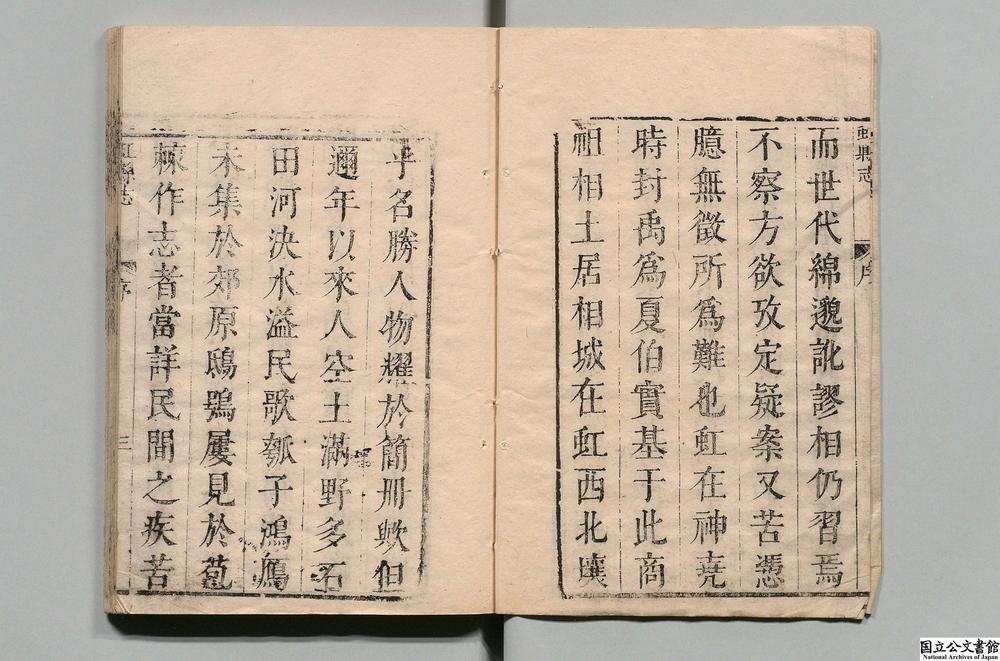 虹縣志
序
而世代綿邈訛謬相仍習焉
不察方欲攷定疑案又苦憑
臆無徵所爲難也虹在神堯
時封禹爲夏伯實基于此商
祖相土居相城在虹西北壤
乎名勝人物耀於簡冊歟但
邇年以來人空土滿野多石
田河决水溢民歌瓠子鴻鴈
未集於郊原鴟鴞屢見於苞
棘作志者當詳民間之疾苦
虹縣志
序
三
国立公文書館
National Archives of Japan